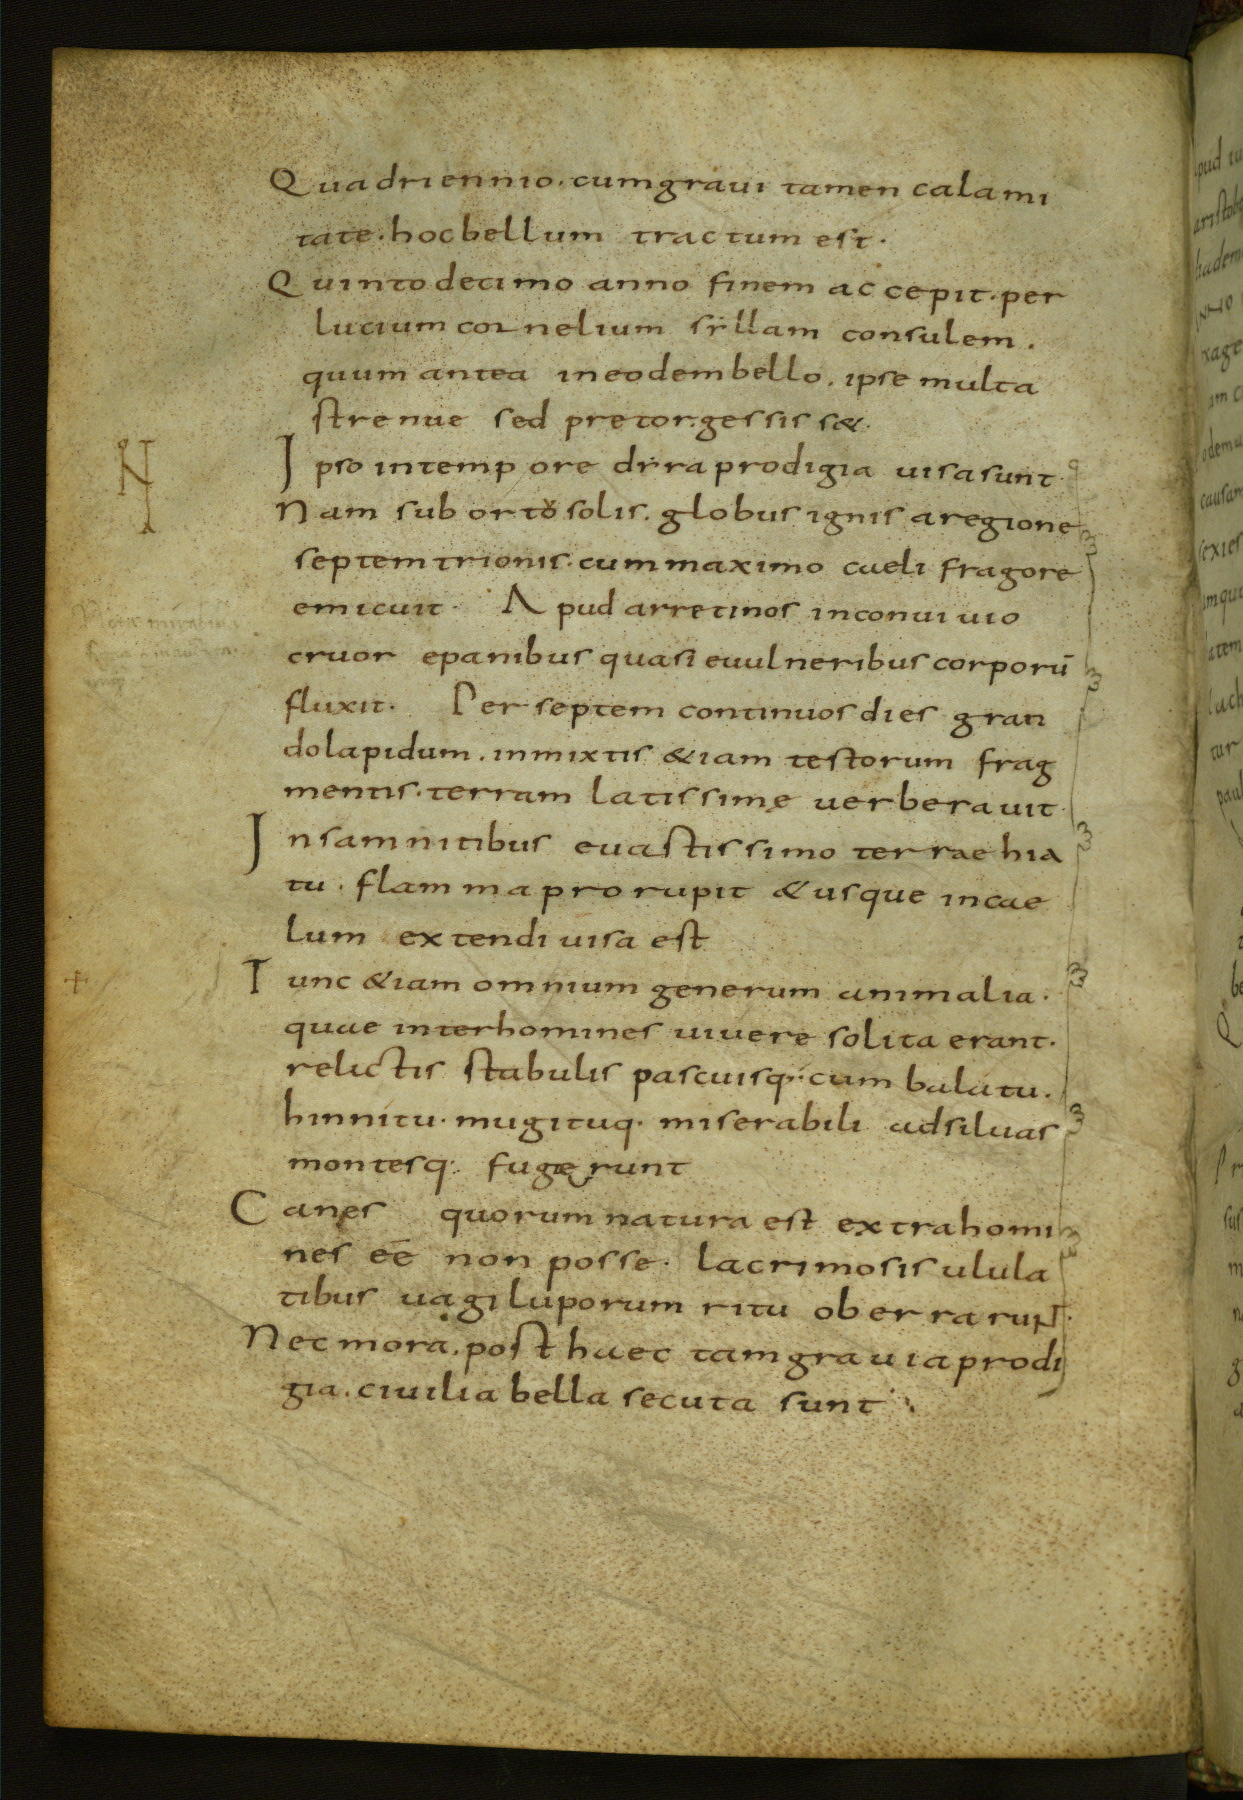 Quadriennio. cumgraui tamen calami
tate. hocbellum tractum est.
Quintodecimo anno finem accepit. per
lucium cornelium syllam consulem.
quum antea ineodembello. ipse multa
strenue sed pretor. gessiss&.
Ipso intempore dyra prodigia uisasunt.
Nam sub orto solis. globus ignis aregione
septemtrionis. cummaximo caeli fragore
emicuit. Apud arretinos inconuiuio
cruor epanibus quasi euulneribus corporū
fluxit. Per septem continuos dies gran
dolapidum. inmixtis &iam testorum frag
mentis. terram latissimę uerberauit.
Insamnitibus euastissimo terrae hia
tu. flamma prorupit & usque incae
lum extendi uisa est
Tunc &iam omnium generum animalia.
quae interhomines uiuere solita erant.
relictis stabulis pascuisq;. cum balatu.
hinnitu. mugituq. miserabili adsiluas
montesq;. fugęrunt
Canes quorum natura est extrahomi
nes eē non posse. lacrimosis ulula
tibus uagi luporum ritu oberrarunt.
Nec mora. post haec tamgrauiaprodi
gia. ciuilia bella secuta sunt.